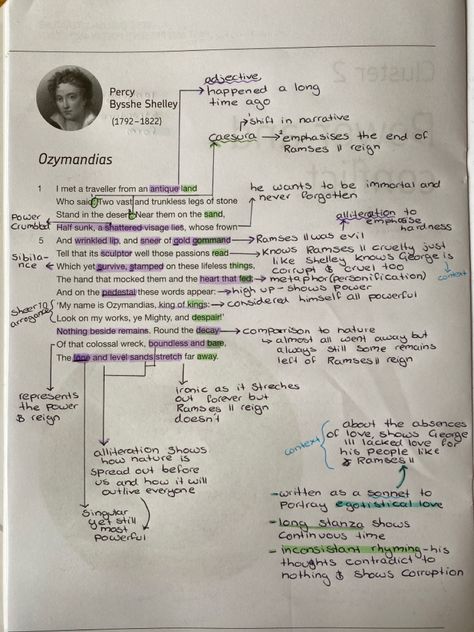 Percy
Bysshe Shelley
(1792–1822)
adjective
happened a long
time ago
shift in narrative
caesura → emphasises the end of
Ramses II reign
Ozymandias
1 I met a traveller from an antique land
Who said: Two vast and trunkless legs of stone
Stand in the desert. Near them on the sand,
Half sunk, a shattered visage lies, whose frown
5 And wrinkled lip, and sneer of cold command
Tell that its sculptor well those passions read
Which yet survive, stamped on these lifeless things,
The hand that mocked them and the heart that fed:
And on the pedestal these words appear:
'My name is Ozymandias, king of kings:
Look on my works, ye Mighty, and despair!'
Nothing beside remains. Round the decay
Of that colossal wreck, boundless and bare,
The lone and level sands stretch far away.
he wants to be immortal and
never forgotten
alliteration to
emphasise
hardness
Power
crumbled
Ramses II was evil
knows Ramses II cruelty just
like Shelley knows George is
corrupt & cruel too
context
Sibila-
nce
metaphor(personification)
high up - shows power
Sheer
arrogance
considered himself all powerful
comparison to nature
almost all went away but
always still some remains
left of Ramses II reign
represents
the Power
& reign
ironic as it streches
out forever but
Ramses II reign
doesn't
alliteration shows
how nature is
spread out before
us and how it will
outlive everyone
singular
yet still
most
powerful
context
about the absences
of love, shows George
III lacked love for
his people like
Ramses II
- written as a sonnet to
Portray egotistical love
- long stanza shows
continuous time
- inconsistant rhyming - his
thoughts contradict to
nothing & shows corruption